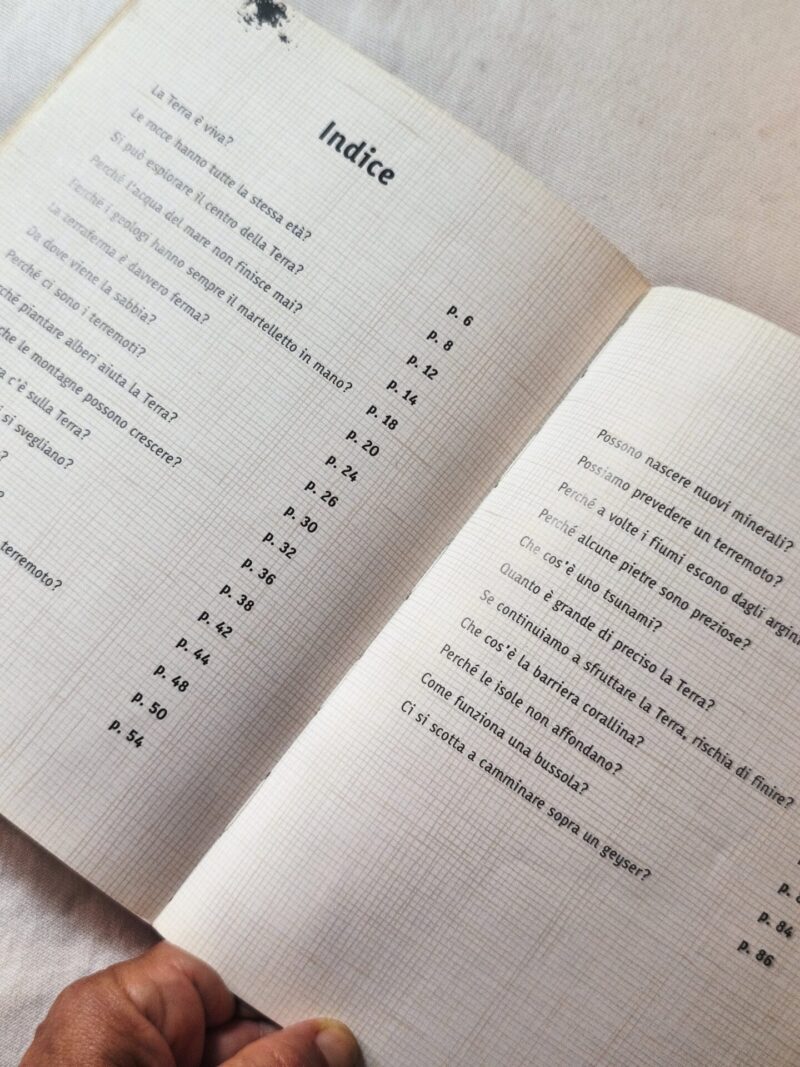 Indice
La Terra è viva? p. 6
Le rocce hanno tutte la stessa età? p. 8
Si può esplorare il centro della Terra? p. 12
Perché l'acqua del mare non finisce mai? p. 14
Perché i geologi hanno sempre il martelletto in mano? p. 18
La terraferma è davvero ferma? p. 20
Da dove viene la sabbia? p. 24
Perché ci sono i terremoti? p. 26
piantare alberi aiuta la Terra? p. 30
le montagne possono crescere? p. 32
c'è sulla Terra? p. 36
si svegliano? p. 38
p. 42
p. 44
p. 48
terremoto? p. 50
p. 54
Possono nascere nuovi minerali?
Possiamo prevedere un terremoto?
Perché a volte i fiumi escono dagli argini
Perché alcune pietre sono preziose?
Che cos'è uno tsunami?
Quanto è grande di preciso la Terra?
Se continuiamo a sfruttare la Terra, rischia di finire?
Che cos'è la barriera corallina?
Perché le isole non affondano? p.
Come funziona una bussola? p. 84
Ci si scotta a camminare sopra un geyser? p. 86